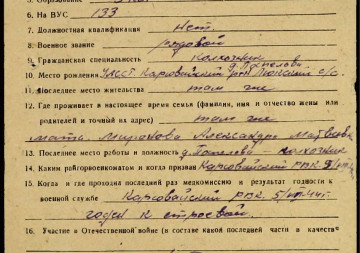 6. На ВУС 133
7. Должностная квалификация нет
8. Военное звание рядовой
9. Гражданская специальность колхозник
10. Место рождения УАССР Карсовайский р-н
11. Последнее место жительства там же
12. Где проживает в настоящее время семья (фамилия, имя и отчество жены или
родителей и точный их адрес) там же
мать Миронова Александра Матвеевна
13. Последнее место работы и должность колхозник
14. Каким райгорвоенкоматом и когда призван Карсовайский РВК
15. Когда и где проходил последний раз медкомиссию и результат годности к
военной службе Карсовайский РВК
годен к строевой.
16. Участие в Отечественной войне (в составе какой последней части в качестве